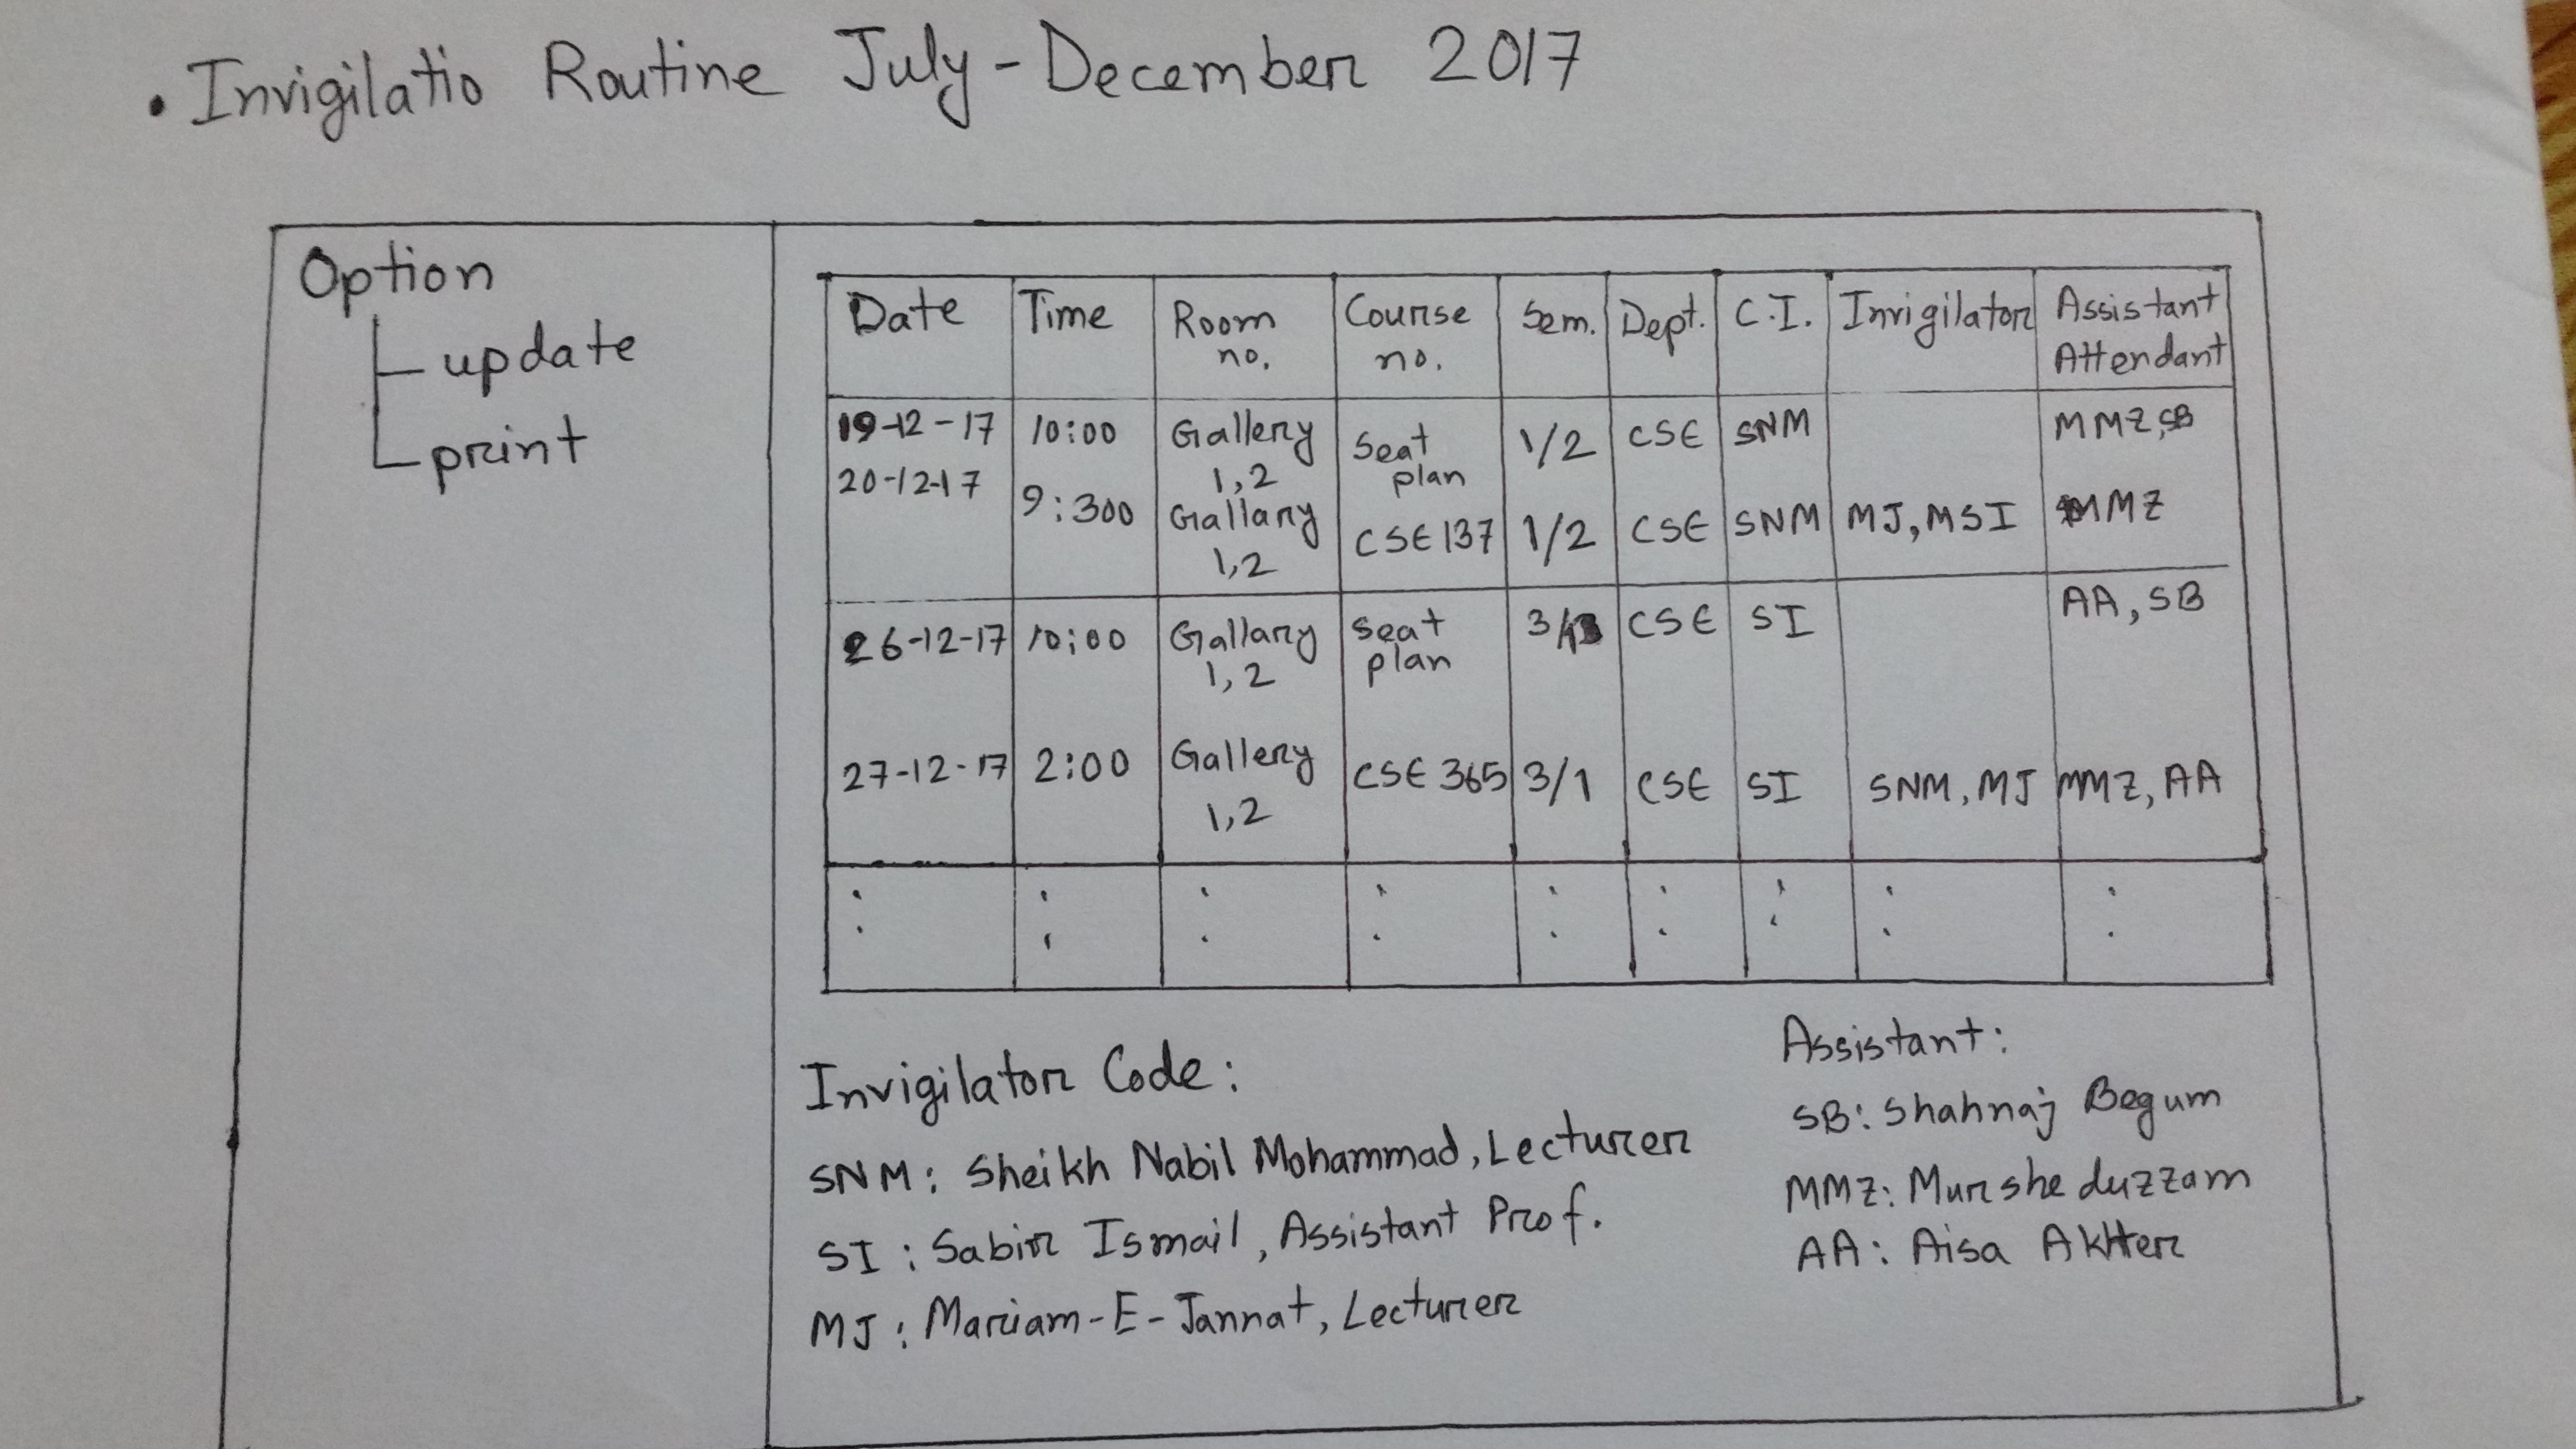 • Invigilatio Routine July-December 2017
Option
update
print
Date Time Room no. Course no. Sem. Dept. C.I. Invigilator Assistant Attendant
19-12-17 10:00 Gallery 1,2 Seat plan 1/2 CSE SNM MMZ,SB
20-12-17 9:300 Gallary 1,2 CSE 137 1/2 CSE SNM MJ, MSI MMZ
26-12-17 10:00 Gallary 1,2 Seat plan CSE SI AA, SB
27-12-17 2:00 Gallery 1,2 CSE 365 3/1 CSE SI SNM, MJ MMZ, AA
Invigilator Code:
SNM: Sheikh Nabil Mohammad, Lecturer
SI: Sabir Ismail, Assistant Prof.
MJ: Mariam-E-Jannat, Lecturer
Assistant:
SB: Shahnaj Begum
MMZ: Mursheduzzam
AA: Aisa Akhter